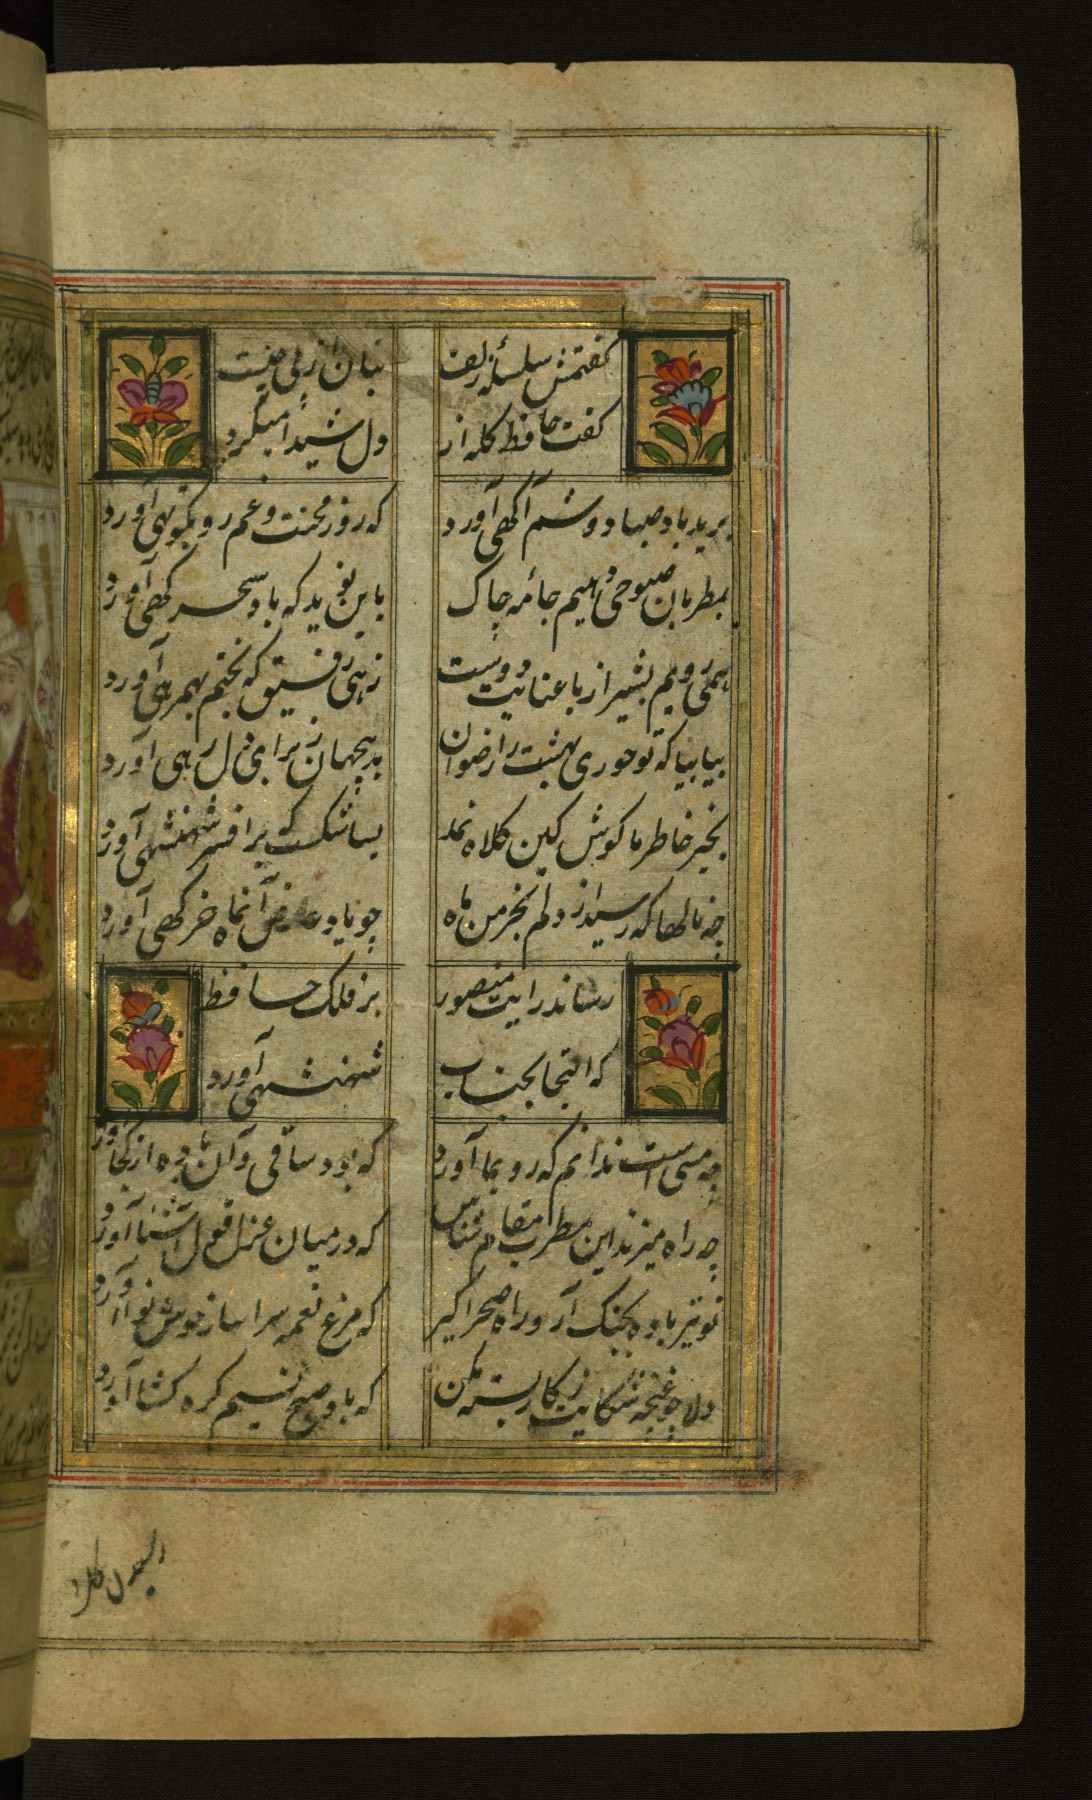 کفتمش سلسلهٔ زلف بتان از پی چیست
کفت حافظ کله از دل شیدا میکرد
برید باد صبا دوشم آکهی آورد که روز محنت و غم رو بکوتهی آورد
بمطربان صبوحی دهیم جامهٔ چاک باین نوید که باد سحرکهی آورد
همی رویم بشیراز با عنایت دوست زهی رفیق که بختم بهمرهی آورد
بیا بیا که تو حوری بهشت را رضوان بدینجهان ز برای دل رهی آورد
بخیر خاطر ما کوش کین کلاه نمد بسا شکست که بر افسر شهنشهی آورد
چه نالها که رسید از دلم بخرمن ماه چو یاد عارض آنماه خرکهی آورد
رساند رایت منصور بر فلک حافظ
که التجا بجناب شهنشهی آورد
چه مستی است ندانم که رو بما آورد که بود ساقی و آن باده از کجا آورد
چه راه میزند این مطرب مقام شناس که در میان غزل قول آشنا آورد
تو نیز باده بچنک آر و راه صحرا کیر که مرغ نغمه سرا ساز خوش نوا آورد
دلا چو غنچه شکایت ز کار بسته مکن که باد صبح نسیم کره کشا آورد
رسیدن کل و